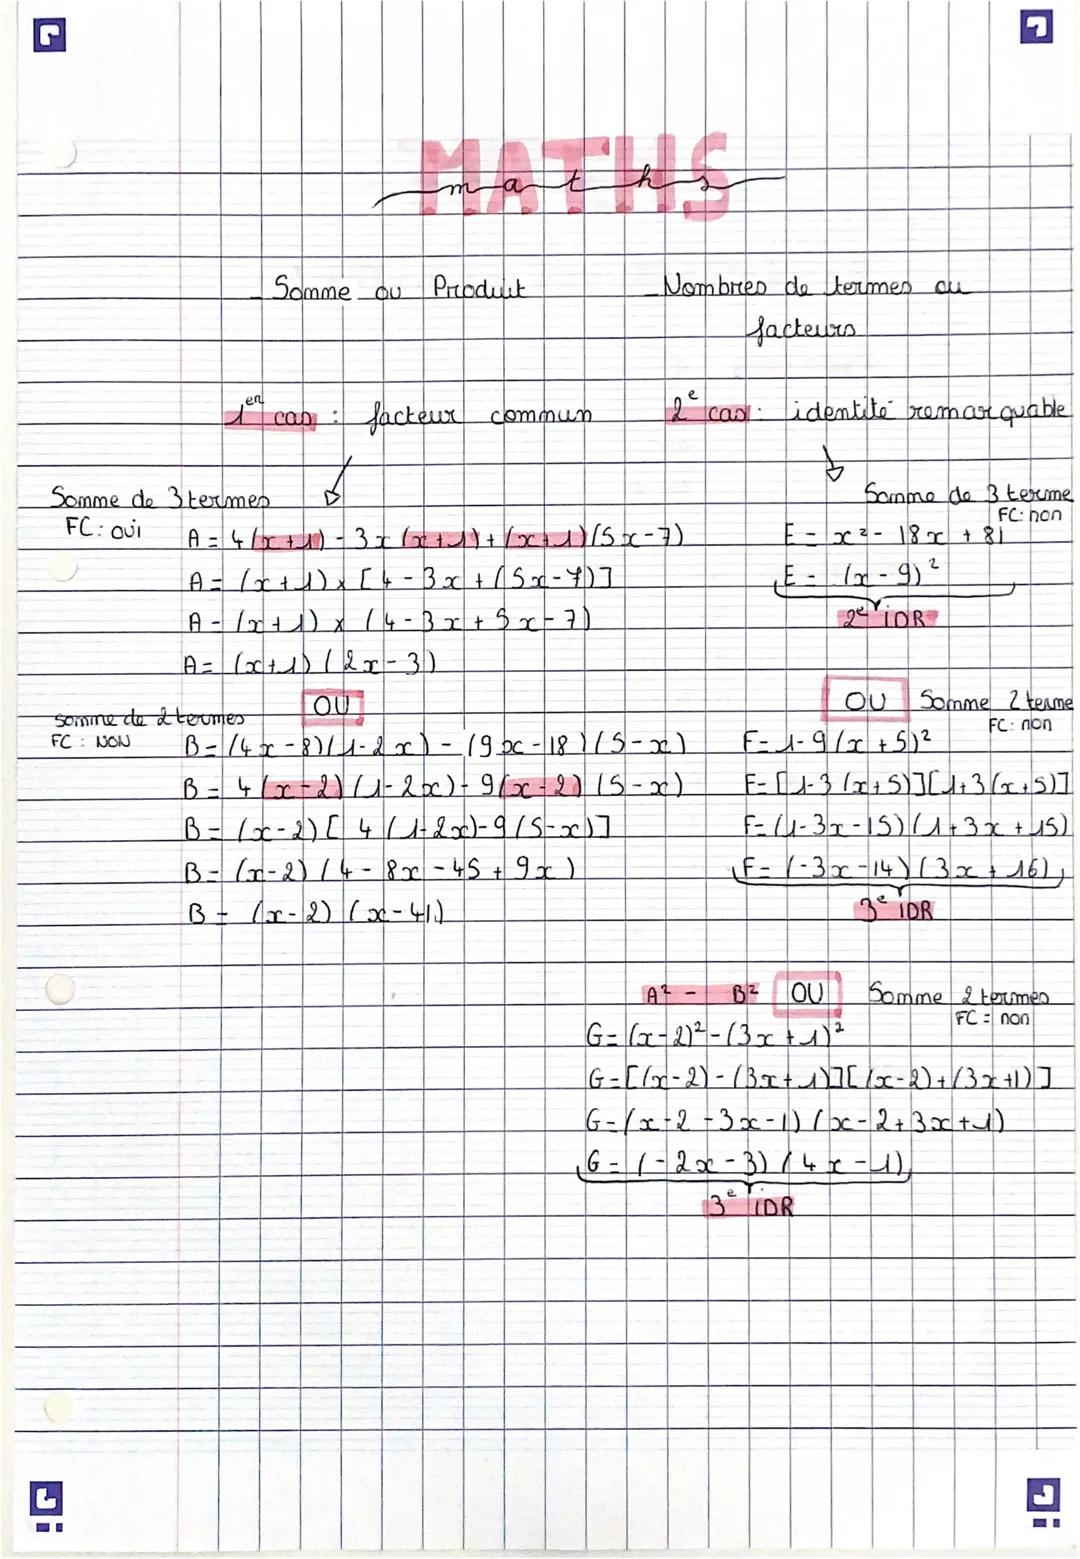 MATHS
maths
- Somme ou Produit
- Nombres de termes ou
facteurs
1er cas : facteur commun
2e cas : identité remarquable
Somme de 3 termes
FC : oui
A = 4(x+1) - 3x(x+1) + (x+1)(5x-7)
A = (x+1) x [4 - 3x + (5x-7)]
A = (x+1) x (4-3x + 5x-7)
A = (x+1)(2x-3)
OU
somme de 2 termes
FC : NON
B = (4x-8)(1-2x) - (9x-18)(5-x)
B = 4(x-2)(1-2x) - 9(x-2)(5-x)
B = (x-2)[4(1-2x)-9(5-x)]
B = (x-2)(4-8x-45+9x)
B = (x-2)(x-41)
Somme de 3 terme
FC: non
E = x² - 18x + 81
E = (x-9)²
2e IDR
OU
Somme 2 terme
FC: non
F = 1-9(x+5)²
F = [1-3(x+5)][1+3(x+5)]
F = (1-3x-15)(1+3x+15)
F = (-3x-14)(3x+16)
3e IDR
A² - B²
OU
Somme 2 termes
FC = non
G = (x-2)² - (3x+1)²
G = [(x-2)-(3x+1)][(x-2)+(3x+1)]
G = (x-2-3x-1)(x-2+3x+1)
G = (-2x-3)(4x-1)
3e IDR